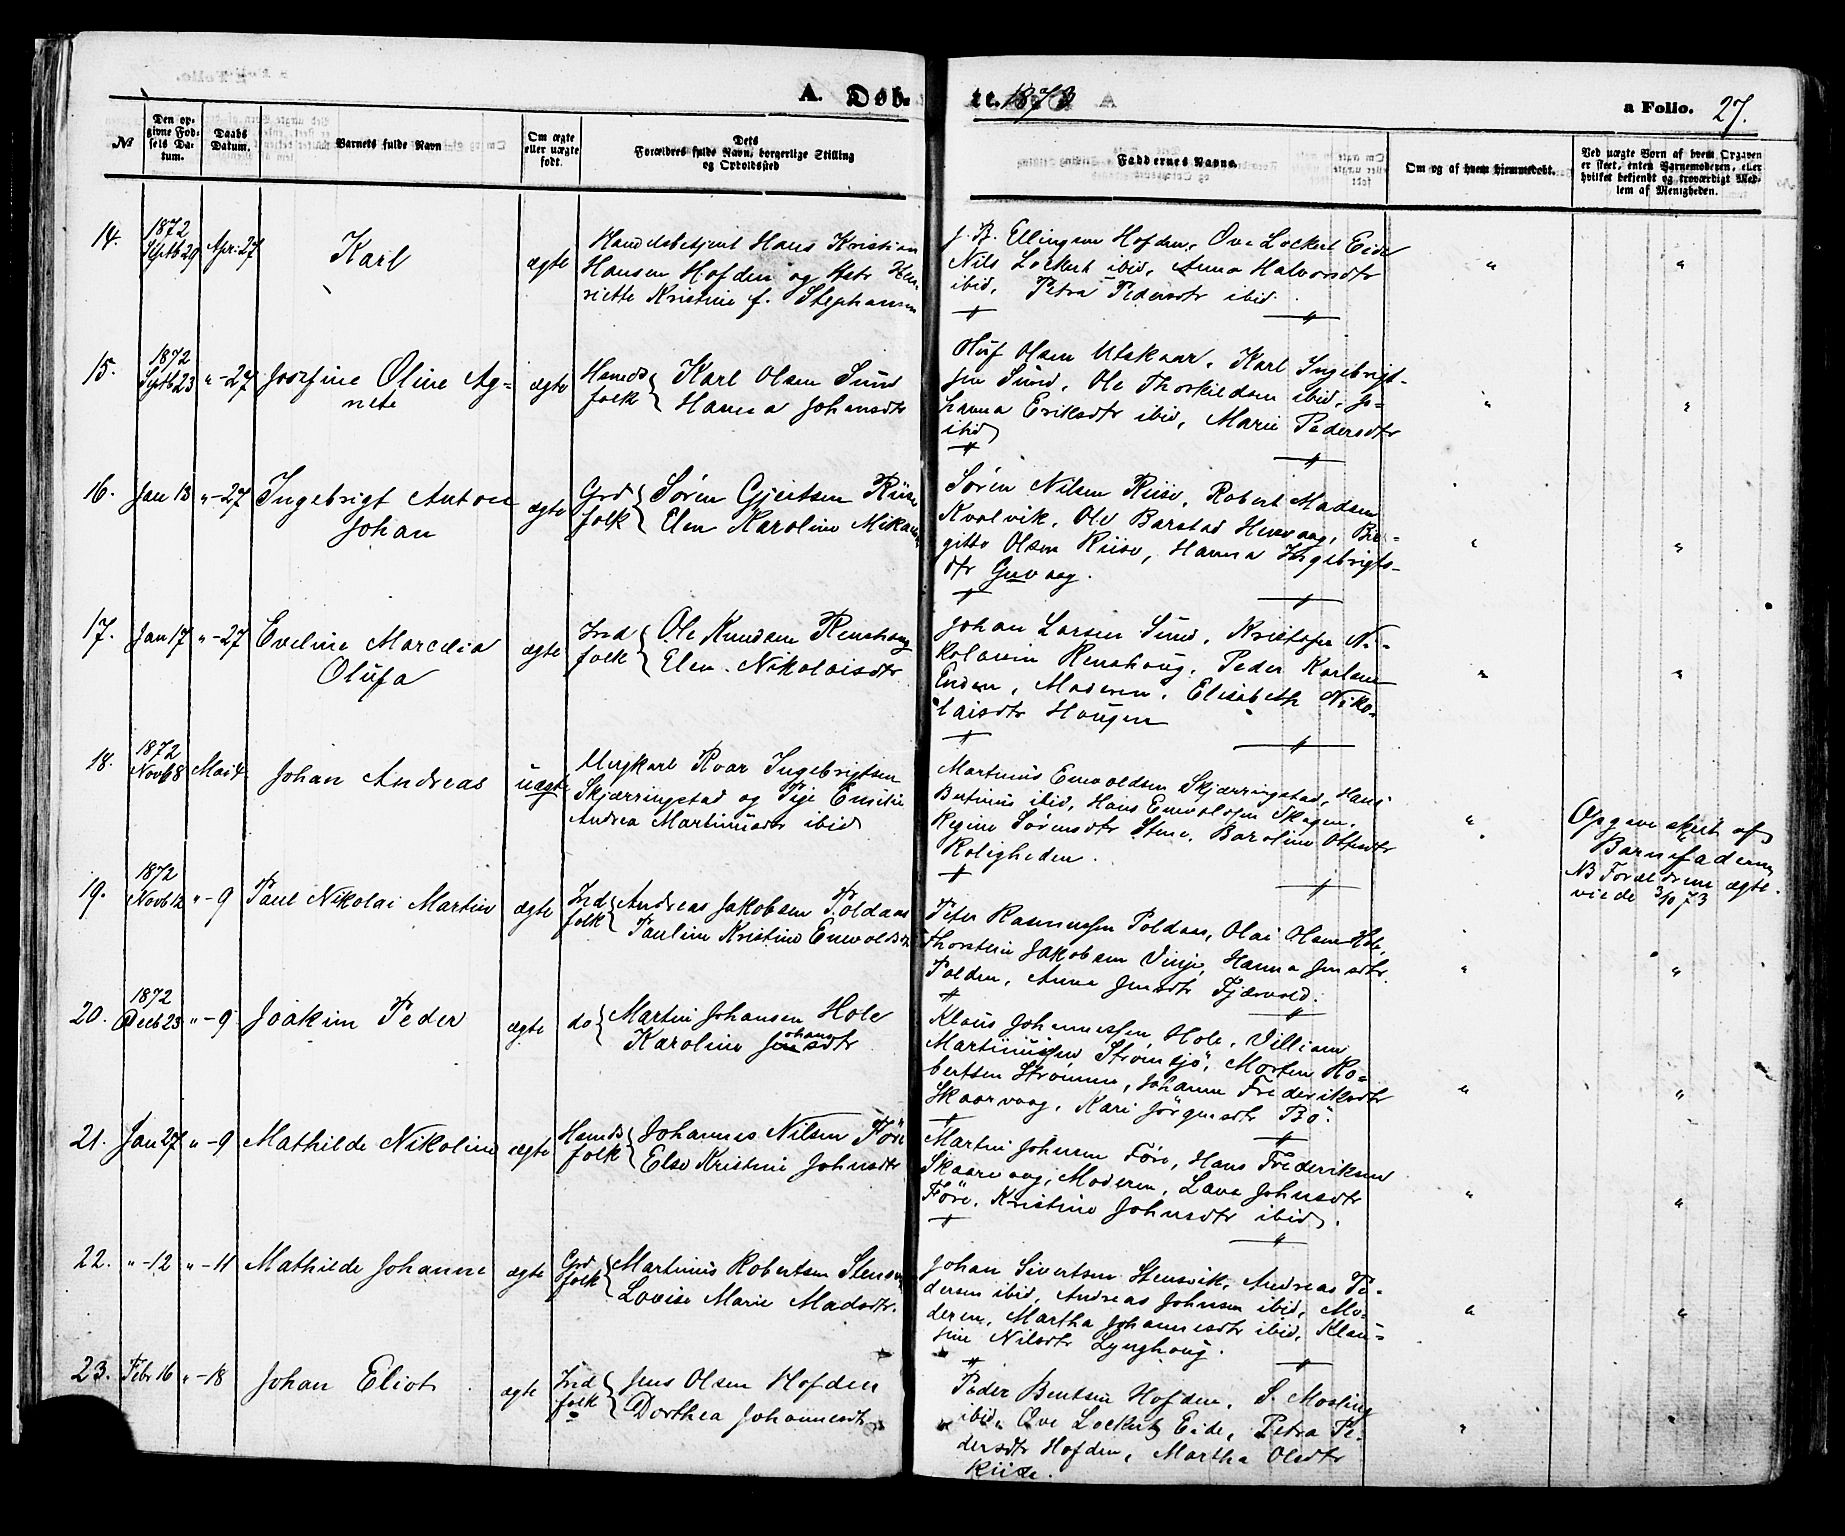 A. Døb-
te. 1873
a Folio. 27.
№
Den op-
givne Fød-
sels Da-
tum.
Daabs
Datum.
Barnets fulde Navn
Om ægte
eller uægte
født.
Dets
Forældres fulde Navn, borgerlige Stilling
og Opholdssted
Faddernes Navne.
Om og af hvem hjemmedøbt.
Ved uægte Børn af hvem Opgaven
er skeet, enten Barnemoderen, eller
hvilket bekjendt og troværdigt Med-
lem af Menigheden.
14.
1872
Septb 29
Apr. 27
Karl
ægte
Handelsbetjent Hans Kristian
Hansen Hofden og Hstr Hen-
riette Kristine f. Stephansen
J. B. Ellingsen Hofden, Ove Lockert Eide
Nils Lockert ibid, Anna Halvorsdtr
ibid, Petra Pedersdtr ibid.
15.
1872
Septb 23
" -27
Josefine Oline Ag-
nete
ægte
Hmds
folk
Karl Olsen Sund
Hanna Johansdtr
Oluf Olsen Utskaar, Karl Ingebrigt-
sen Sund, Ole Thorkildsen ibid, Jo-
hanna Eriksdtr ibid, Marie Pedersdtr
ibid
16.
Jan 13
" -27
Ingebrigt Anton
Johan
ægte
Grd
folk
Søren Gjertsen Riise
Elen Karoline Mikals
Søren Nilsen Riise, Robert Madsen
Kvalvik, Ole Barstad Husvaag, Bir-
gitte Olsen Riise, Hanna Ingebrigts-
dtr Guvaag.
17.
Jan 17
" -27
Eveline Marcelia
Olufa
ægte
Ind
folk
Ole Knudsen Renshaug
Elen Nikolaisdtr
Johan Larsen Sund, Kristofer Ni-
kolaisen Renshoug, Peder Karlsen
Enden, Moderen, Elisabeth Niko-
laisdtr Hougen
18.
1872
Novb 8
Mai 4
Johan Andreas
uægte
Ungkarl Roar Ingebrigtsen
Skjærringstad og Pige Emilie
Andrea Martinusdtr ibid
Martinus Enevoldsen Skjærringstad, Hans
Bertinus ibid, Hans Enevoldsen Skagen,
Regine Sørensdtr Stene, Baroline Ottesdtr
Roligheden.
Opgave skeet af
Barnefaderen
NB Forældrene ægte-
viede 3/10 73
19.
1872
Novb 12
" -9
Paul Nikolai Martin
ægte
Ind
folk
Andreas Jakobsen Poldaas
Pauline Kristine Enevoldsd
Peter Rasmussen Poldaas, Olai Olsen Hole,
Thorstein Jakobsen Vinje, Hanna Jensdtr
Polden, Anna Jensdtr Fjærvold.
20.
1872
Decb 23
" -9
Joakim Peder
ægte
do
Martin Johansen Hole
Karoline Johansdtr
Klaus Johannessen Hole, Villiam
Martinussen Strømsjö, Morten Ro-
bertsen Strømme, Johanna Frederiksdtr
Skaarvaag, Kari Jörgensdtr Bö.
21.
Jan 27
" -9
Mathilde Nikoline
ægte
Hmds
folk
Johannes Nilsen Före
Else Kristine Johnsdtr
Martin Johnsen Före, Hans Frederiksen
Skaarvaag, Moderen, Lava Johnsdtr
Före, Kristine Johnsdtr ibid.
22.
" -12
" -11
Mathilde Johanne
ægte
Grd
folk
Martinus Robertsen Stensv
Lovise Marie Madsdtr.
Johan Sivertsen Stensvik, Andreas Pe-
dersen ibid, Andreas Johnsen ibid, Mo-
deren, Martha Johannesdtr ibid, Klau-
sine Nilsdtr Lynghoug.
23.
Febr 16
" -18
Johan Eliot
ægte
Ind
folk
Jens Olsen Hofden
Dorthea Johannesdtr
Peder Bentsen Hofden, S. Mosling
ibid, Ove Lockert Eide, Petra Pe-
dersdtr Hofden, Martha Olsdtr
Riise.